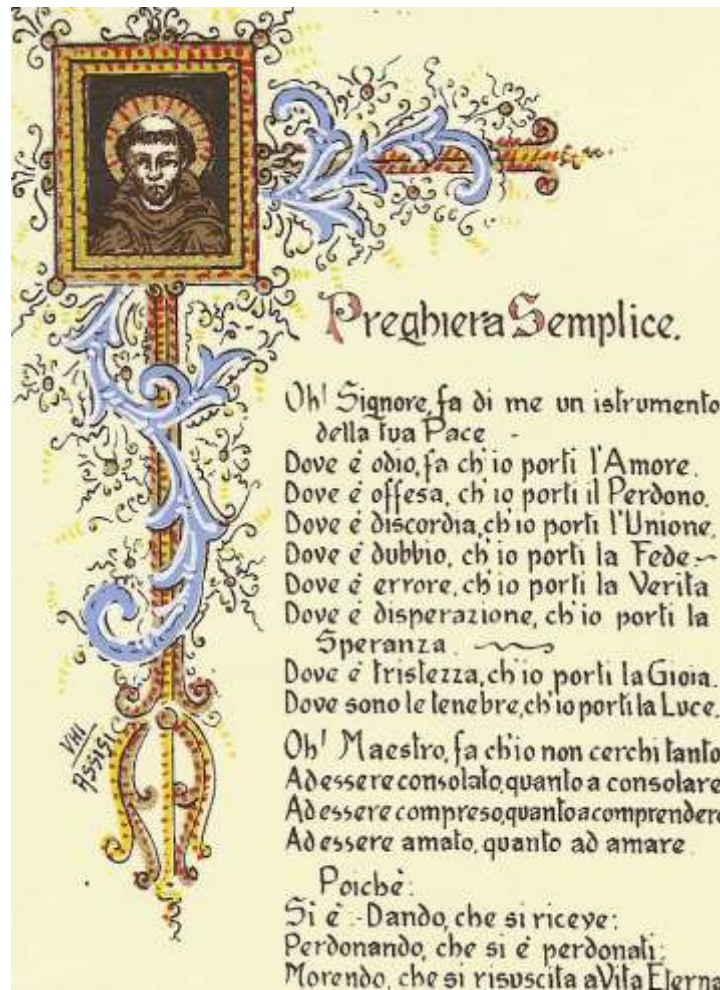 Preghiera Semplice.
Oh! Signore, fa di me un istrumento
della tua Pace -
Dove é odio, fa ch'io porti l'Amore.
Dove é offesa, ch'io porti il Perdono.
Dove é discordia, ch'io porti l'Unione.
Dove é dubbio, ch'io porti la Fede -
Dove é errore, ch'io porti la Verita
Dove é disperazione, ch'io porti la
Speranza.
Dove é tristezza, ch'io porti la Gioia.
Dove sono le tenebre, ch'io porti la Luce.
Oh! Maestro, fa ch'io non cerchi tanto
Ad essere consolato, quanto a consolare
Ad essere compreso, quanto a comprendere
Ad essere amato, quanto ad amare.
Poichè:
Si é - Dando, che si riceve:
Perdonando, che si é perdonati;
Morendo, che si risuscita a Vita Eterna
VIII
ASSISI